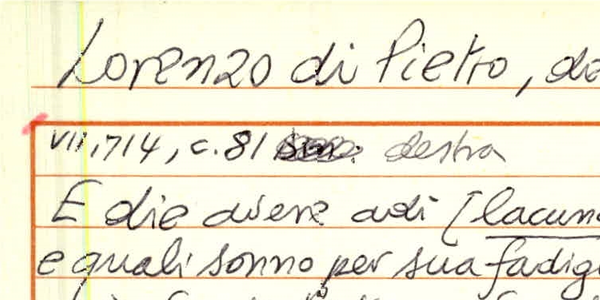 Lorenzo di Pietro, de
VII, 714, c. 81 destra
E die avere adi [lacun
e quali sonno per sua fadig